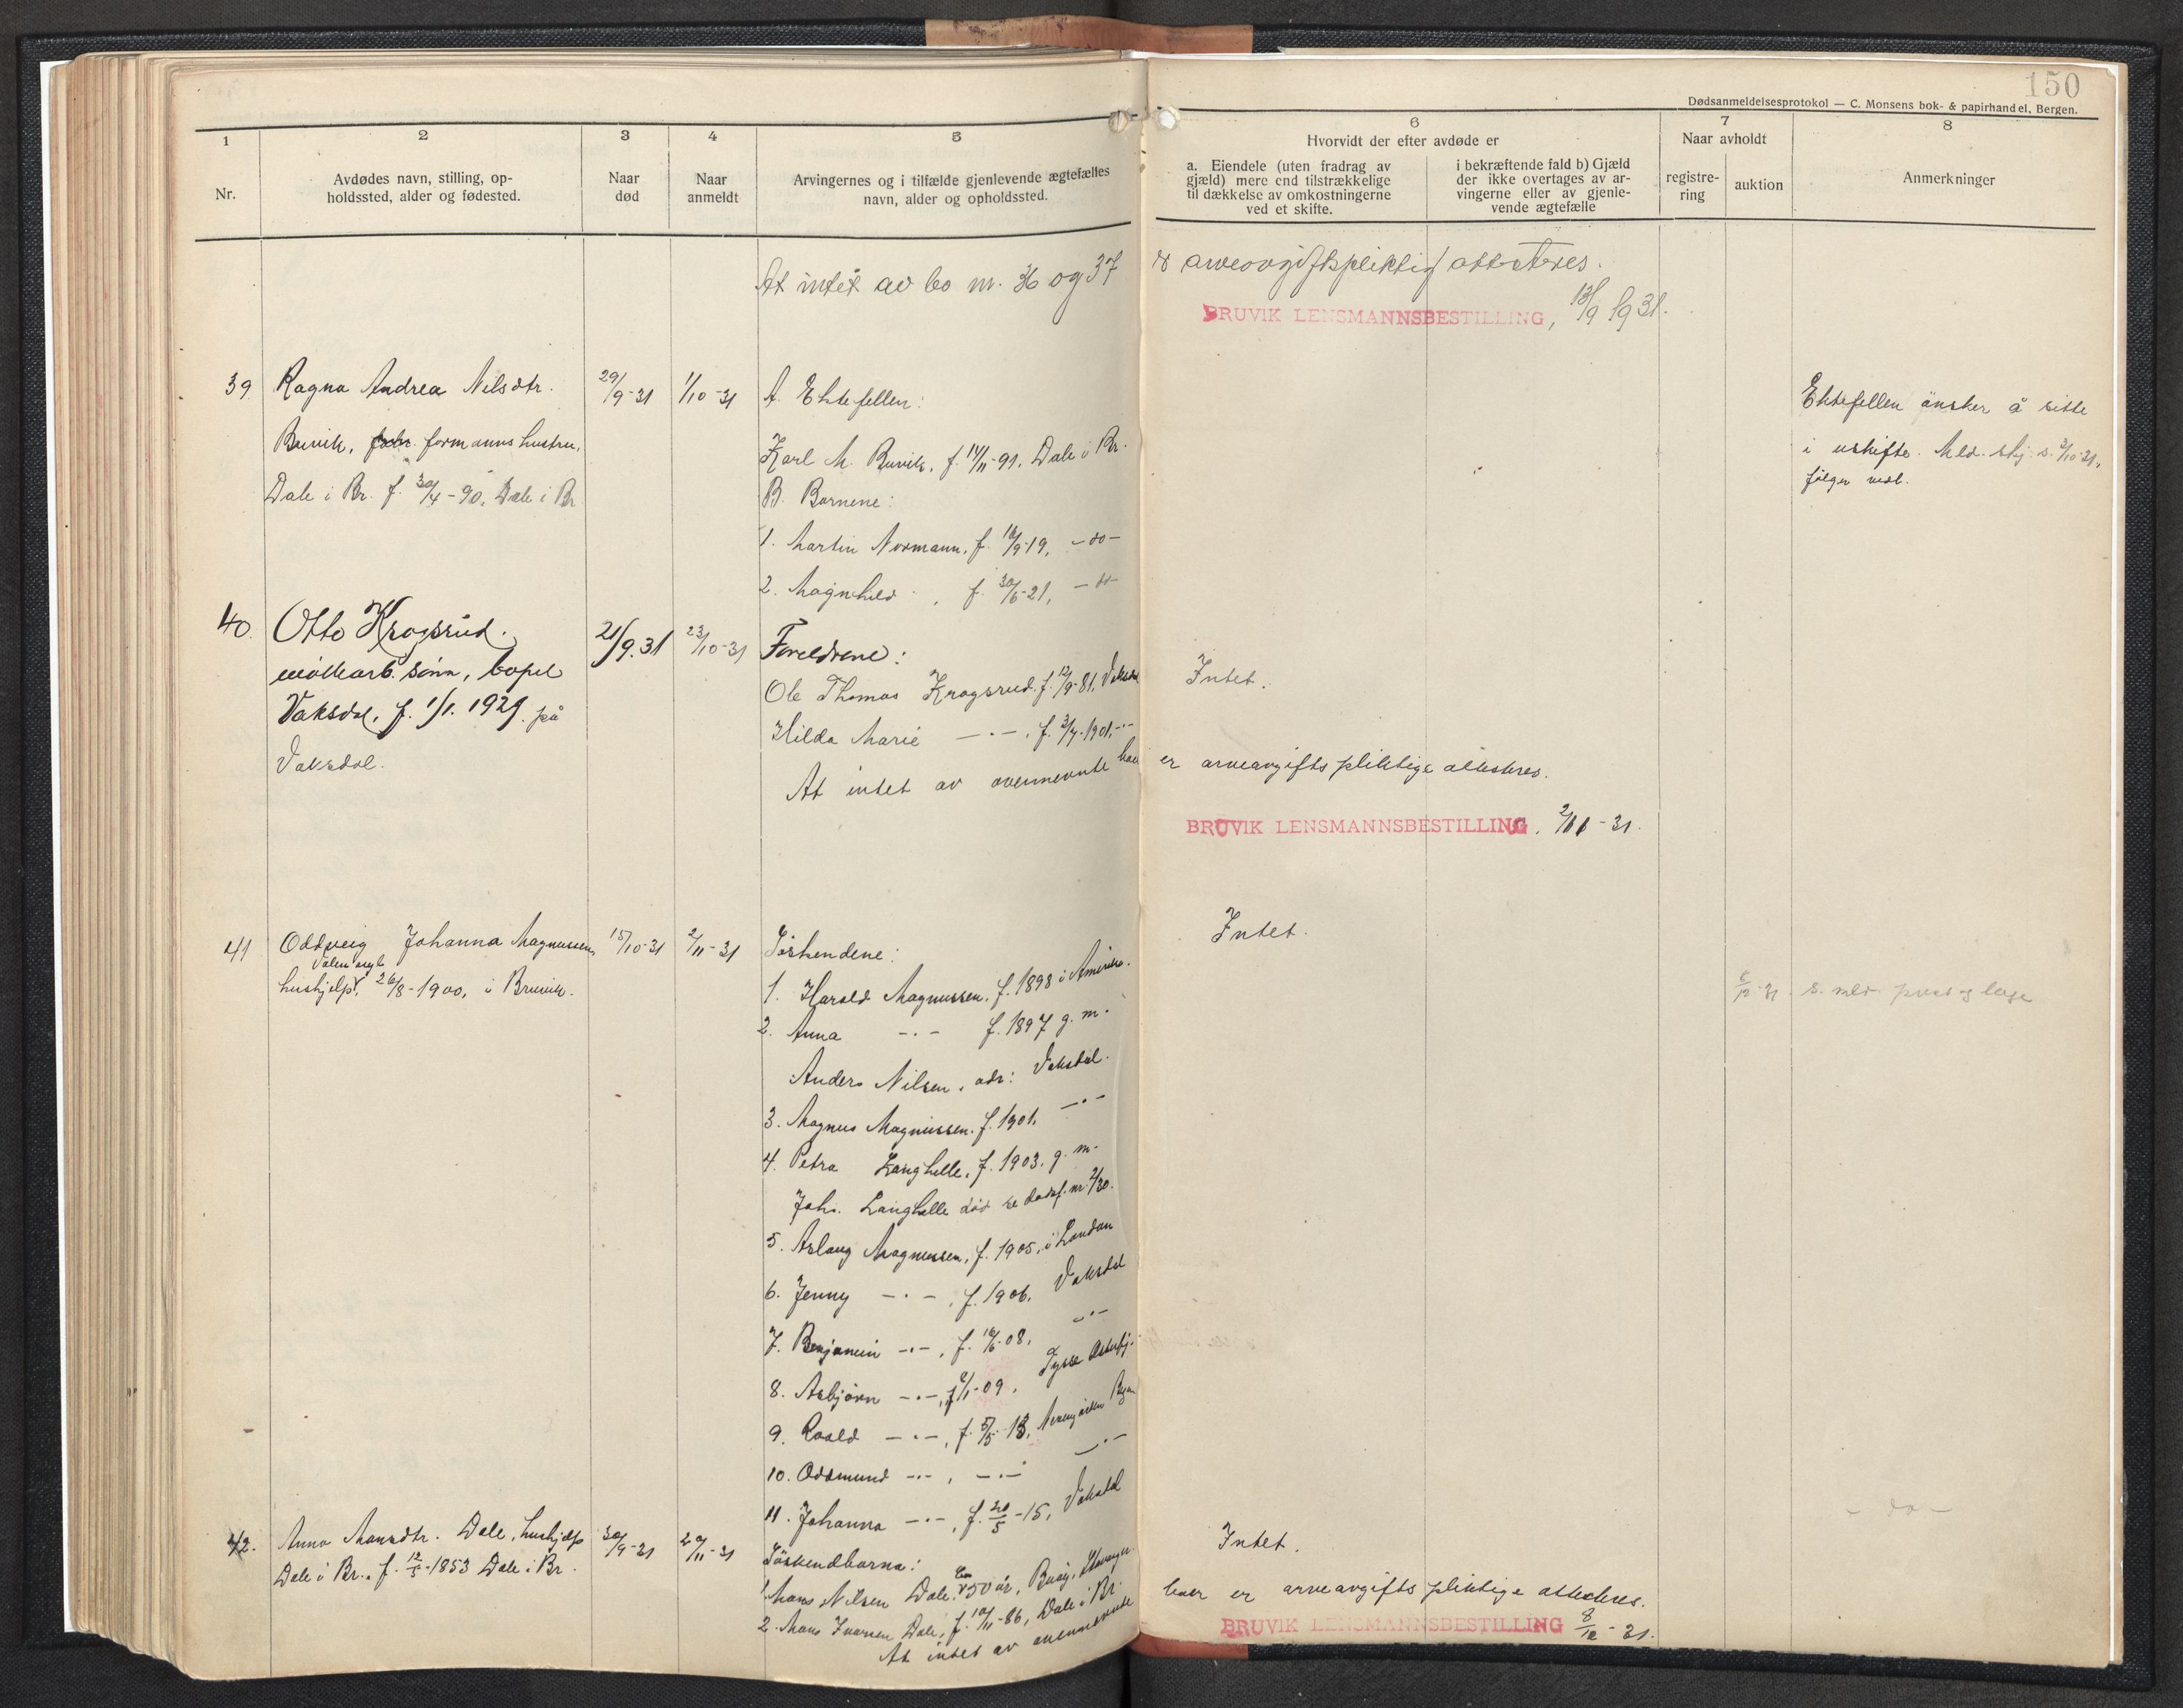 150
Dødsanmeldelsesprotokol — C. Monsens bok- & papirhandel, Bergen.
1
Nr.
2
Avdødes navn, stilling, op-
holdssted, alder og fødested.
3
Naar
død
4
Naar
anmeldt
5
Arvingernes og i tilfælde gjenlevende ægtefælles
navn, alder og opholdssted.
6
Hvorvidt der efter avdøde er
a. Eiendele (uten fradrag av
gjæld) mere end tilstrækkelige
til dækkelse av omkostningerne
ved et skifte.
i bekræftende fald b) Gjæld
der ikke overtages av ar-
vingerne eller av gjenle-
vende ægtefælle
7
Naar avholdt
registre-
ring
auktion
8
Anmerkninger
At intet av bo nr. 36 og 37 er arveavgiftspliktig attesteres.
BRUVIK LENSMANNSBESTILLING, 13/9 1931.
39 Ragna Andrea Nilsdtr. 29/9-31 1/10-31 A. Ektefellen:
Buvik, formanns hustru,
Dale i Br. f. 30/4-90, Dale i Br
Karl M. Buvik, f. 14/11-91, Dale i Br.
B. Barnene:
1. Martin Normann, f. 18/9-19, -do-
2. Magnhild, f. 30/6-21, -do-
Ektefellen ønsker å sitte
i uskifte. Meld. skj. s. 3/10-31,
følger vedl.
40. Otto Krogsrud. 21/9.31 23/10-31 Foreldrene:
møllearb. sønn, bopel
Vaksdal, f. 1/1. 1929. på
Vaksdal.
Ole Thomas Krogsrud. f. 12/9-81, Vaksdal
Hilda Marie -·-, f. 3/7-1901, -·-
Intet.
At intet av ovennevnte boer er arveavgifts pliktige attesteres.
BRUVIK LENSMANNSBESTILLING, 2/11-31.
41 Oddveig Johanna Magnussen 15/10-31 2/11-31 Søskendene:
hushjelp, 26/8-1900, i Bruvik.
Intet.
1. Harald Magnussen, f. 1898 i Amerika.
2. Anna -·- f. 1897 g. m.
Anders Nilsen, adr: Vaksdal.
3. Magnus Magnussen. f. 1901, -·-
4. Petra Langhelle, f. 1903. g. m.
Johs. Langhelle død se dødsf. nr. 2/30.
5. Aslaug Magnussen, f. 1905, i London
6. Jenny -·-, f. 1906, Vaksdal
7. Benjamin -·-, f. 18/6-08, -·-
8. Asbjørn -·-, f. 2/1-09, Tysse
9. Roald -·-, f. 5/5-13,
10. Oddmund -·-, -·- -·-
11. Johanna -·-, f. 20/5-15, Vaksdal
8/12-31 s. meld.
42. Anna Monsdtr. Dale, hushjelp 30/9-31 20/11-31 Søskendbarna:
Dale i Br., f. 12/5-1853 Dale i Br.
1. Mons Nilsen Dale, 50 år,
2. Mons Ivarsen Dale, f. 10/11-86, Dale i Br.
Intet.
- do -
At intet av ovennevnte boer er arveavgifts pliktige attesteres.
BRUVIK LENSMANNSBESTILLING 8/12-31.